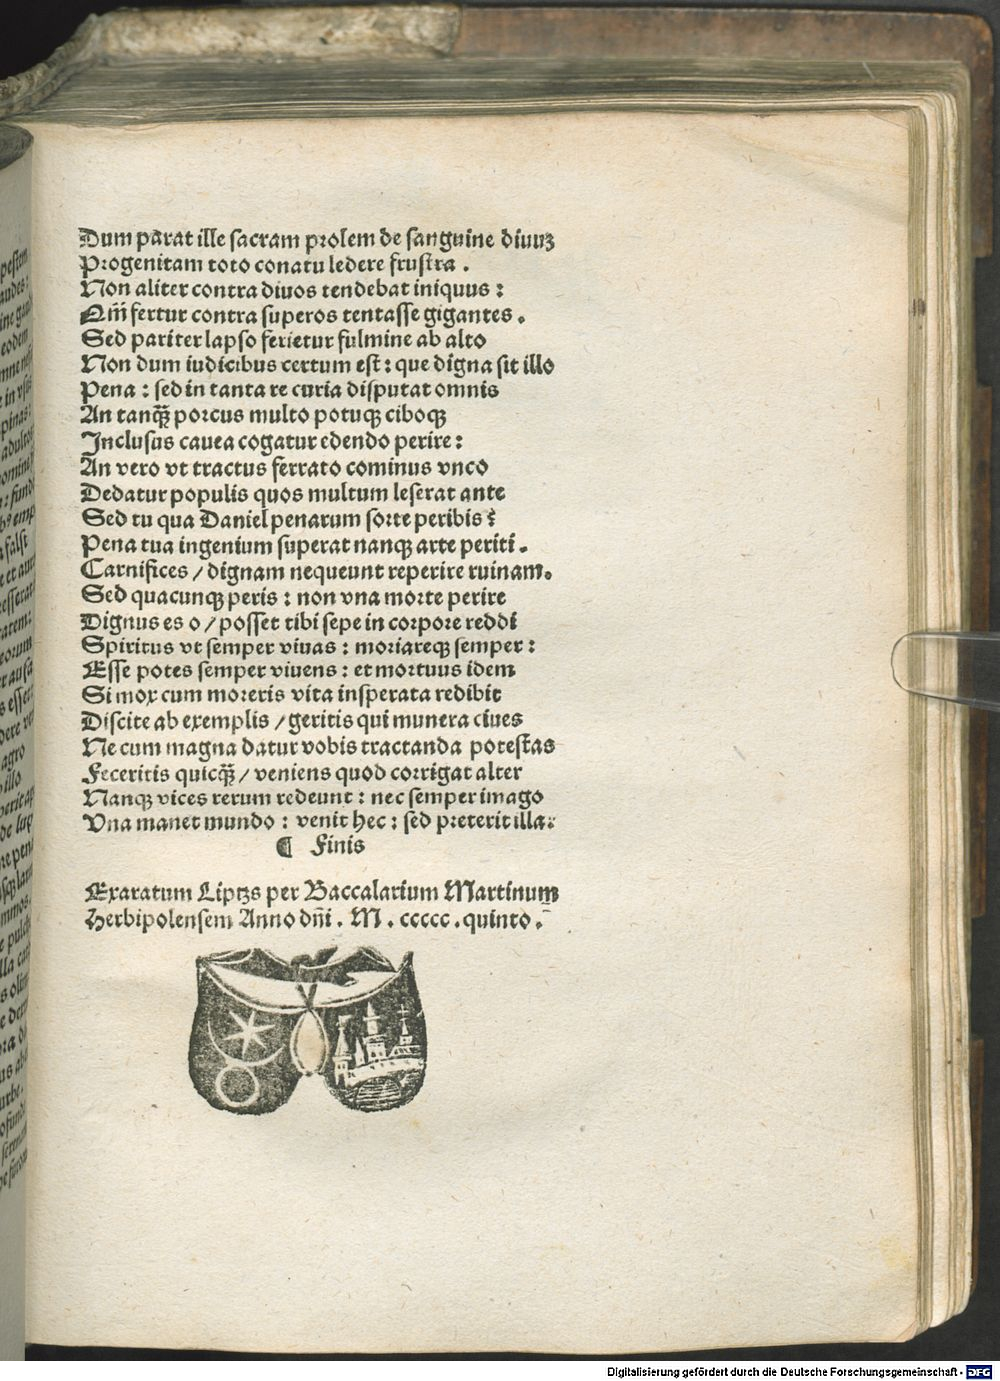 Dum parat ille sacram prolem de sanguine diuuꝫ
Progenitam toto conatu ledere frustra .
Non aliter contra diuos tendebat iniquus :
Qm̄ fertur contra superos tentasse gigantes .
Sed pariter lapso ferietur fulmine ab alto
Non dum iudicibus certum est : que digna sit illo
Pena : sed in tanta re curia disputat omnis
An tanqȝ̄ porcus multo potuqȝ ciboqȝ
Inclusus cauea cogatur edendo perire :
An vero vt tractus ferrato cominus vnco
Dedatur populis quos multum leserat ante
Sed tu qua Daniel penarum sorte peribis ?
Pena tua ingenium superat nanqȝ arte periti .
Carnifices / dignam nequeunt reperire ruinam .
Sed quacunqȝ peris : non vna morte perire
Dignus es o / posset tibi sepe in corpore reddi
Spiritus vt semper viuas : moriareqȝ semper :
Esse potes semper viuens : et mortuus idem
Si mox cum moreris vita insperata redibit
Discite ab exemplis / geritis qui munera ciues
Ne cum magna datur vobis tractanda potestas
Feceritis quicqȝ̄ / veniens quod corrigat alter
Nanqȝ vices rerum redeunt : nec semper imago
Vna manet mundo : venit hec : sed preterit illa .
¶ Finis
Exaratum Liptzs per Baccalarium Martinum
Herbipolensem Anno dn̄i . M . ccccc . quinto .
Digitalisierung gefördert durch die Deutsche Forschungsgemeinschaft - DFG